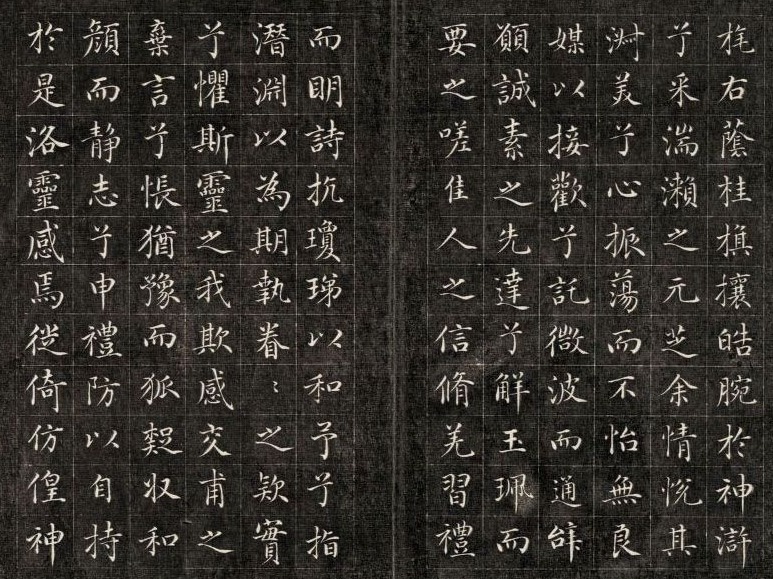 旄右蔭桂旗攘皓腕於神滸
兮采湍瀨之元芝余情悅其
淑美兮心振蕩而不怡無良
媒以接歡兮託微波而通辭
願誠素之先達兮解玉珮而
要之嗟佳人之信脩羌習禮
而明詩抗瓊珶以和予兮指
潛淵以為期執眷〻之款實
兮懼斯靈之我欺感交甫之
棄言兮悵猶豫而狐疑収和
顏而静志兮申禮防以自持
於是洛靈感焉徙倚仿偟神